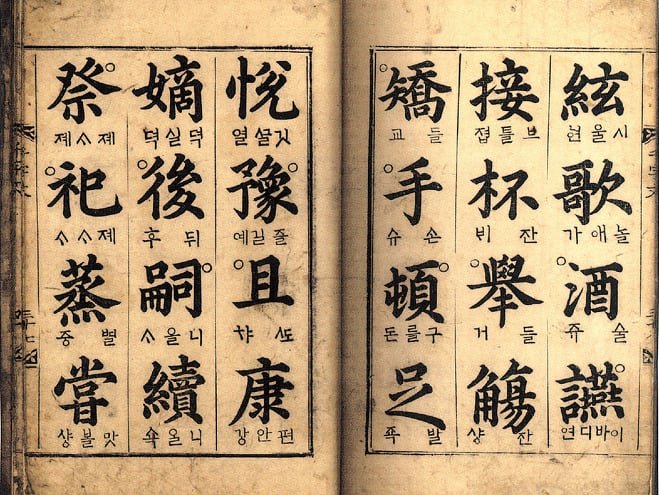 絃
시울현
歌
놀애가
酒
술쥬
讌
이바디연
接
브틀졉
杯
잔ᄇᆡ
舉
들거
觴
잔샹
矯
들교
手
손슈
頓
구를돈
足
발죡
悅
豫
즐길예
且
ᄯᅩ챠
康
편안강
嫡
뎍실뎍
後
뒤후
嗣
니올ᄉᆞ
續
니올쇽
祭
졔ᄉᆞ졔
祀
졔ᄉᆞᄉᆞ
蒸
嘗
맛볼샹